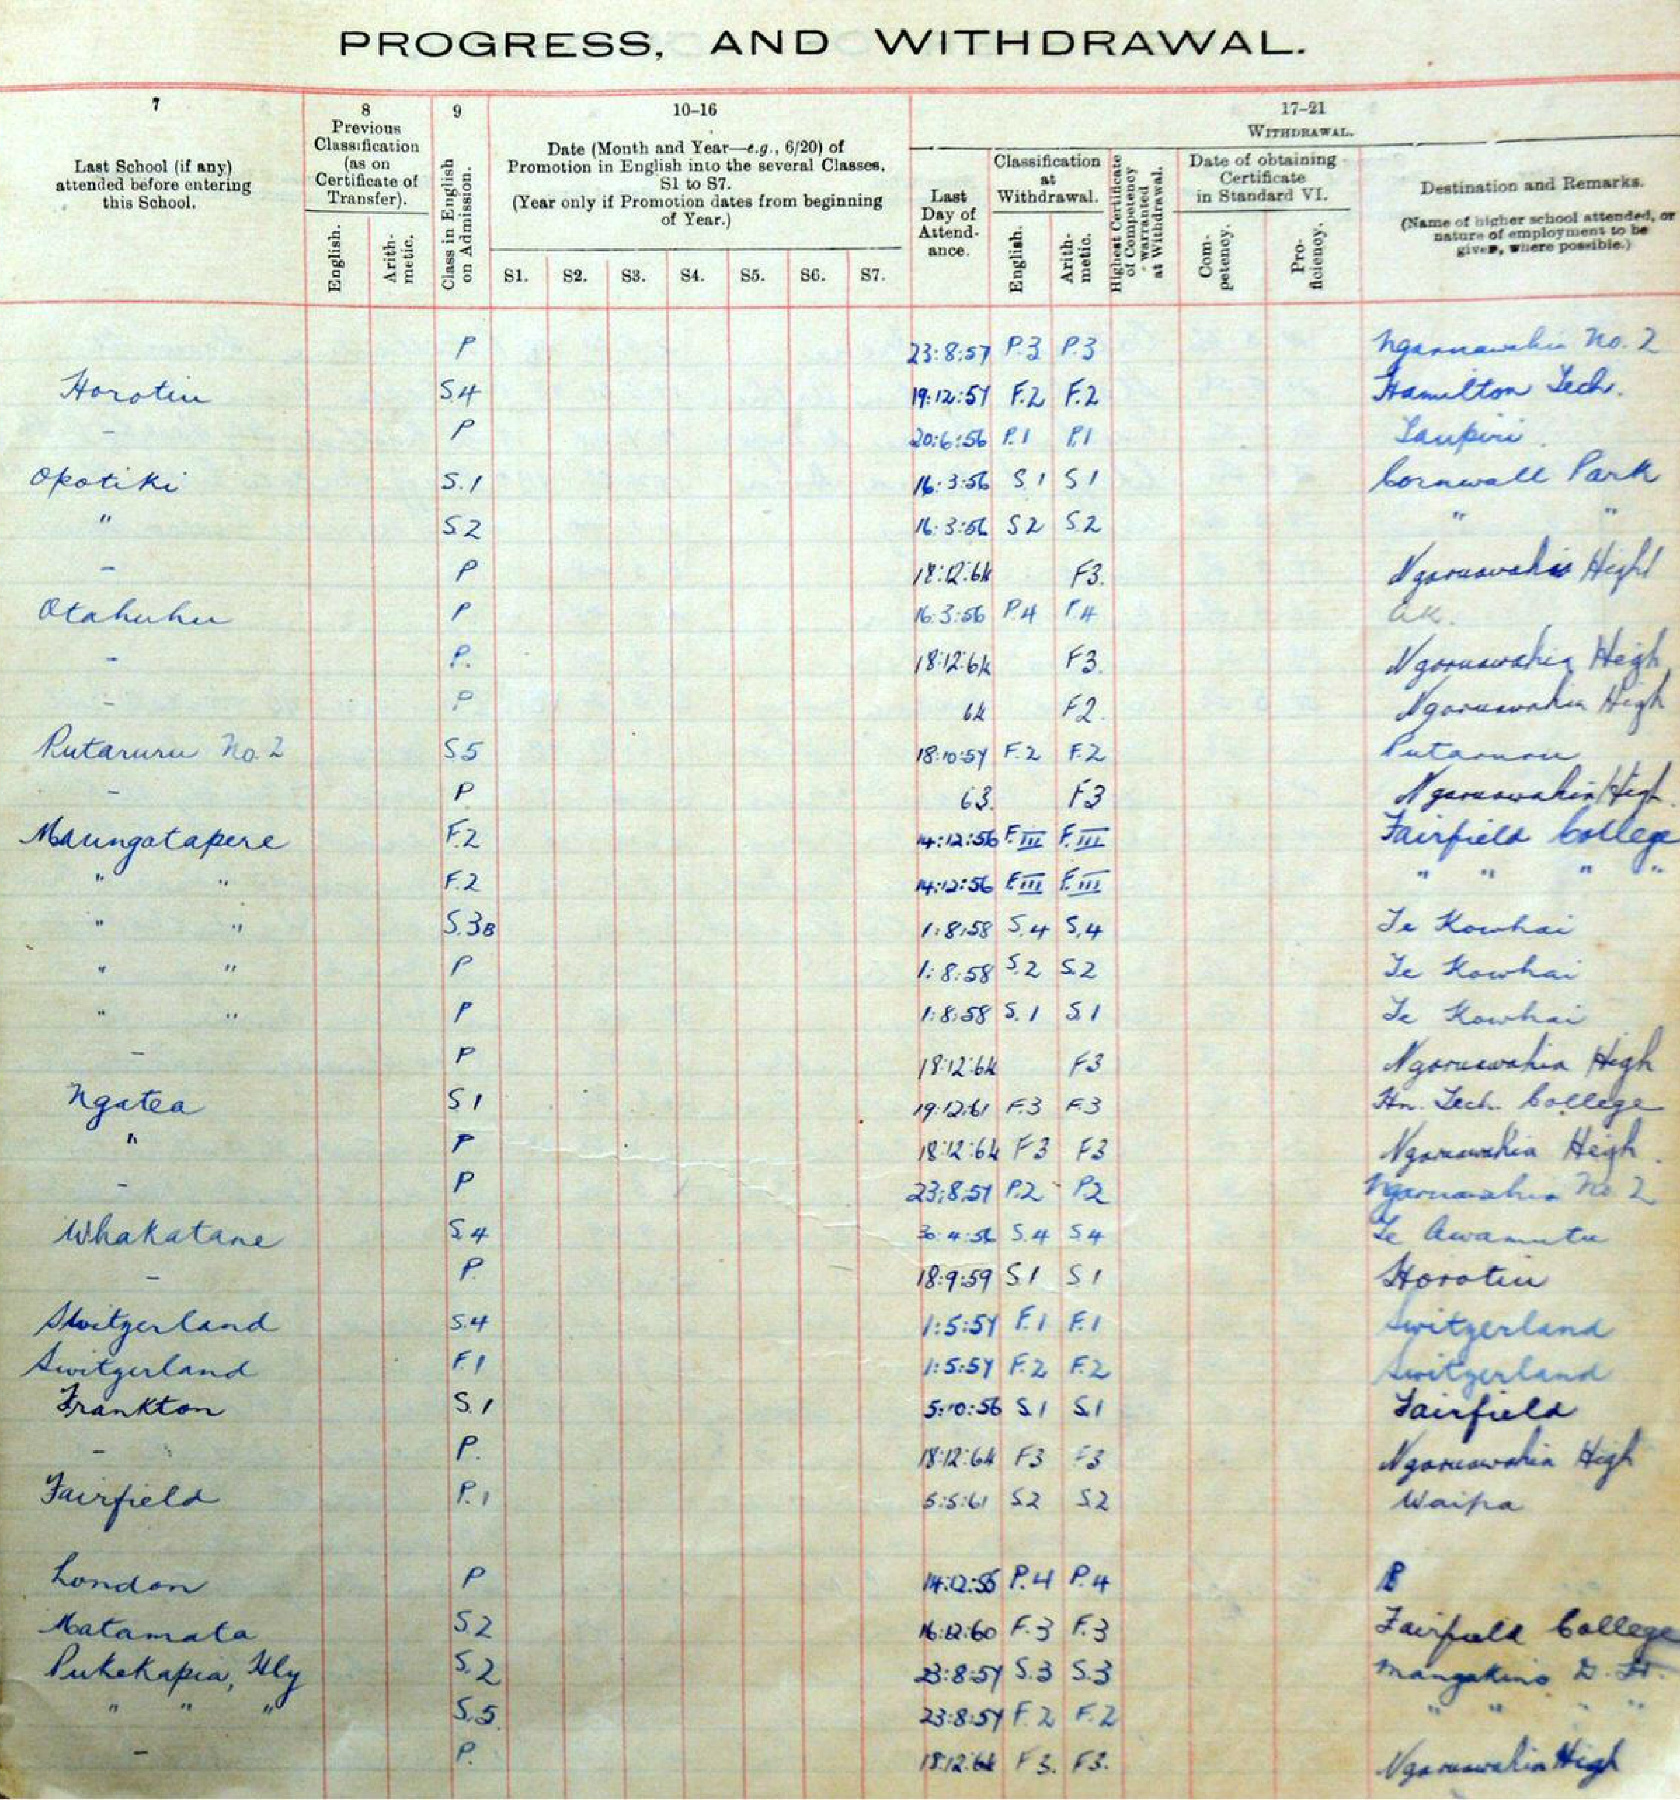 PROGRESS, AND WITHDRAWAL.
7
Last School (if any) attended before entering this School.
8
Previous Classification (as on Certificate of Transfer).
English.
Arith-metic.
9
Class in English on Admission.
10–16
Date (Month and Year—e.g., 6/20) of Promotion in English into the several Classes, S1 to S7.
(Year only if Promotion dates from beginning of Year.)
S1. S2. S3. S4. S5. S6. S7.
17–21
WITHDRAWAL.
Last Day of Attend-ance.
Classification at Withdrawal.
English.
Arith-metic.
Highest Certificate of Competency warranted at Withdrawal.
Date of obtaining Certificate in Standard VI.
Com-petency.
Pro-ficiency.
Destination and Remarks.
(Name of higher school attended, or nature of employment to be given, where possible.)
P 23:8:57 P.3 P.3 Ngaruawahia No. 2
Horotiu S4 19:12:57 F.2 F.2 Hamilton Tech.
– P 20:6:56 P.1 P.1 Taupiri.
Opotiki S.1 16:3:56 S1 S1 Cornwall Park
" S2 16:3:56 S2 S2 " "
– P 18:12:64 F3. Ngaruawahia High
Otahuhu P 16:3:56 P.4 P4 Ak.
– P. 18:12:64 F3. Ngaruawahia High
– P 64 F2. Ngaruawahia High
Putaruru No. 2 S5 18:10:57 F.2 F.2 Putaruru
– P 63. F3 Ngaruawahia High.
Maungatapere F.2 14:12:56 F.III F.III Fairfield College
" " F.2 14:12:56 F.III F.III " " " "
" " S.3B 1:8:58 S.4 S.4 Te Kowhai
" " P 1:8:58 S.2 S.2 Te Kowhai
" " P 1:8:58 S.1 S.1 Te Kowhai
– P 18:12:64 F3 Ngaruawahia High
Ngatea S1 19:12:61 F.3 F.3 Hn. Tech. College
" P 18:12:64 F3 F3 Ngaruawahia High.
– P 23:8:57 P.2 P2 Ngaruawahia No. 2
Whakatane S.4 30:4:56 S.4 S4 Te Awamutu
– P. 18:9:59 S1 S1 Horotiu
Switzerland S.4 1:5:57 F.1 F.1 Switzerland
Switzerland F.1 1:5:57 F.2 F.2 Switzerland
Frankton S.1 5:10:56 S.1 S.1 Fairfield
– P. 18:12:64 F3 F3 Ngaruawahia High
Fairfield P.1 5:5:61 S2 S.2 Waipa
London P 14:12:55 P.4 P.4
Matamata S.2 16:12:60 F.3 F.3 Fairfield College
Pukekapia, Hly S.2 23:8:57 S.3 S.3 Mangakino D.
" " " S.5. 23:8:57 F.2 F.2 " " " "
– P. 18:12:64 F3. F3. Ngaruawahia High